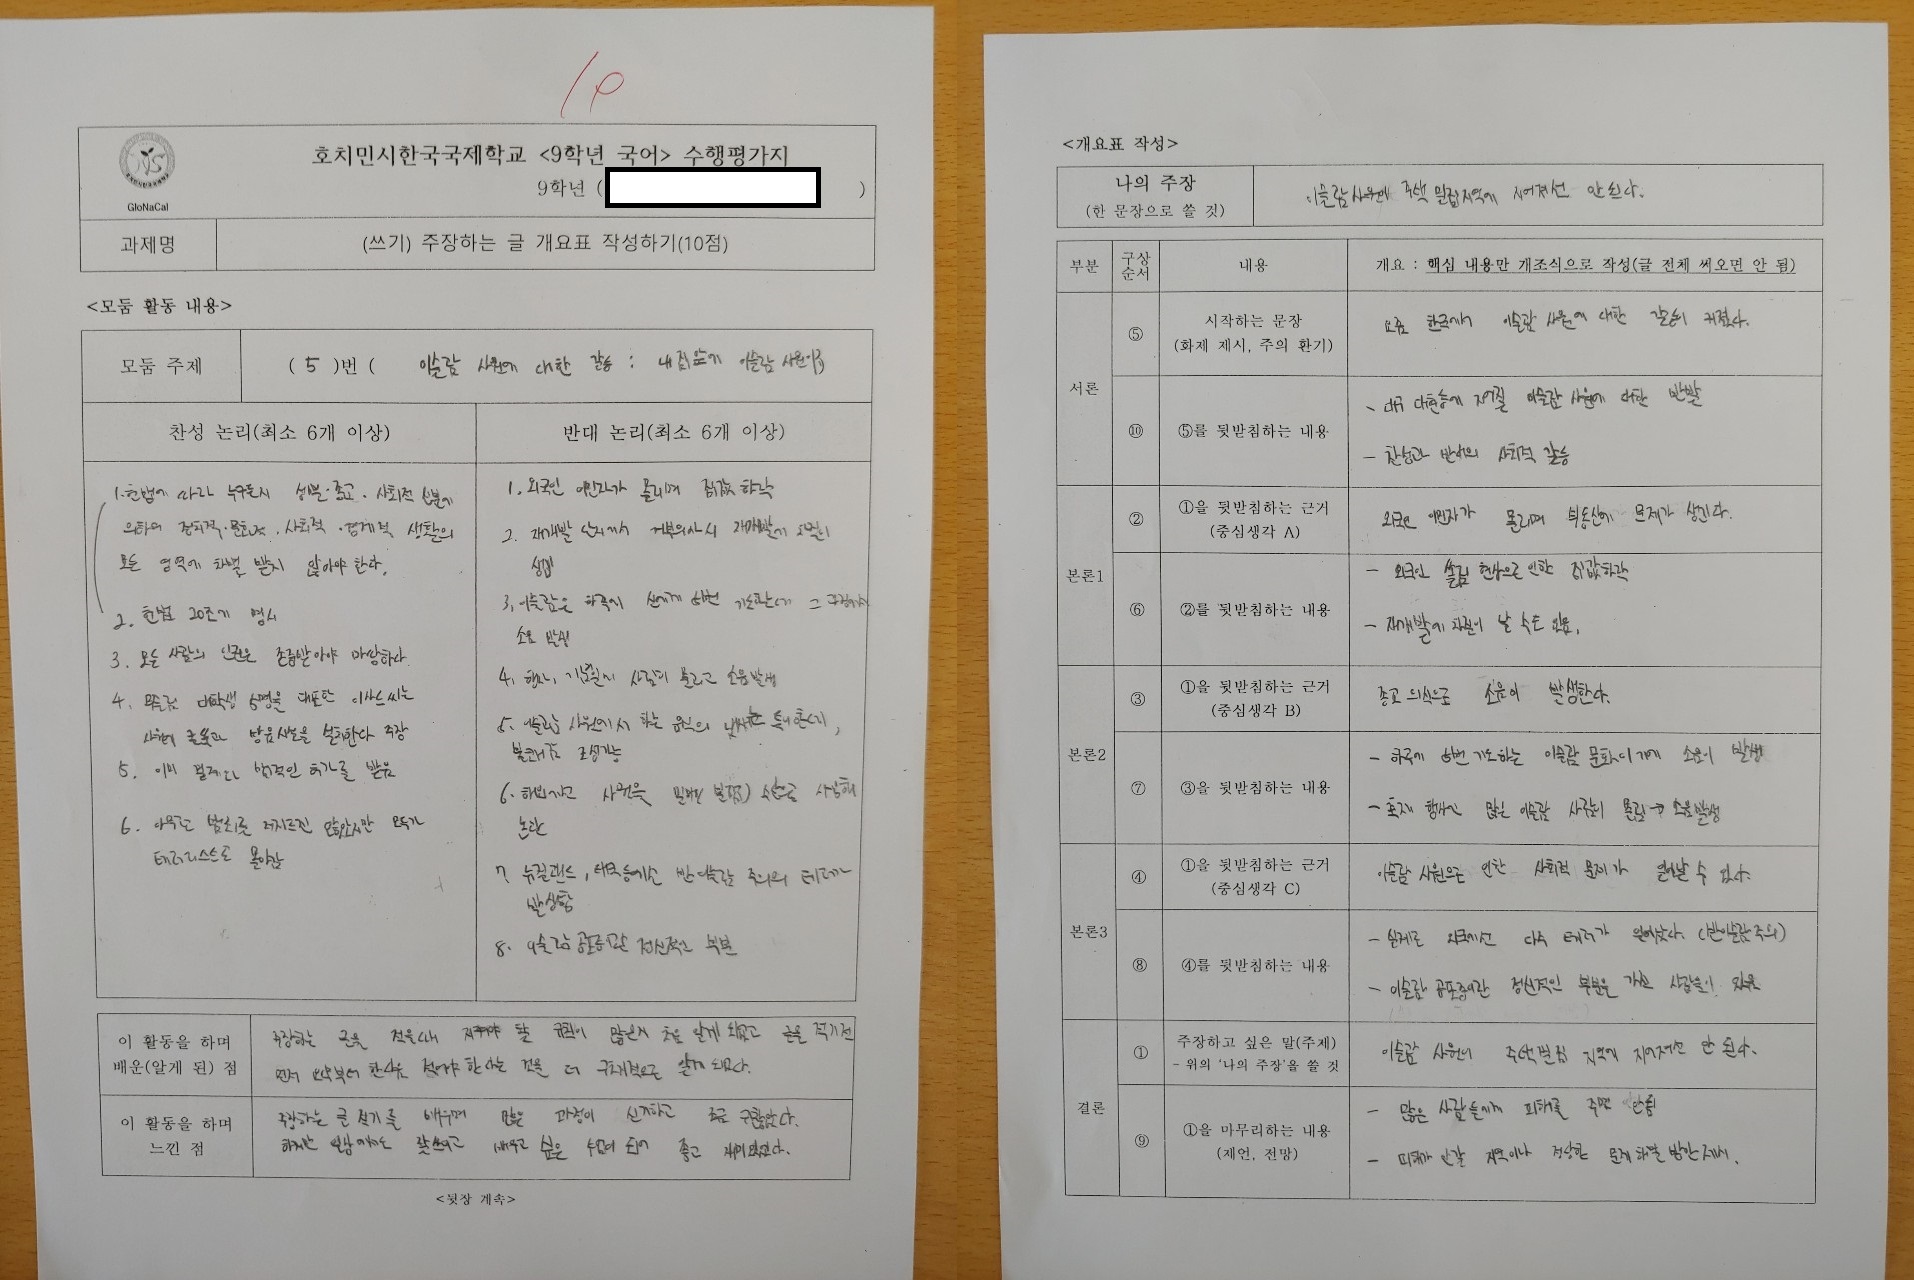 10
호치민시한국국제학교 <9학년 국어> 수행평가지
9학년 ( )
GloNaCal
과제명
(쓰기) 주장하는 글 개요표 작성하기(10점)
<모둠 활동 내용>
모둠 주제
( 5 )번 ( 이슬람 사원에 대한 갈등 : 내 집앞에 이슬람 사원이?)
찬성 논리(최소 6개 이상)
반대 논리(최소 6개 이상)
1. 헌법에 따라 누구든지 성별·종교·사회적 신분에
의하여 정치적·문화적·사회적·경제적 생활의
모든 영역에 차별 받지 않아야 한다.
2. 헌법 20조에 명시
3. 모든 사람의 인권은 존중받아야 마땅하다
4. 무슬림 대학생 을 대표한 씨는
굴뚝과 방음시설을 설치한다 주장
5. 이미 법적인 허가를 받음
6. 아무런 범죄를 저지르진 않았지만 모두가
테러리스트로 몰아감
1. 외국인 이민자가 몰리며 집값 하락
2. 재개발 논의에서 거부의사시 재개발에 차질이
생김
3. 이슬람은 하루에 5번 기도한다 그 과정에서
소음 발생
4. 행사, 기도할시 사람이 몰리고 소음발생
5. 이슬람 사원에서 하는 음식의 냄새는 특이한데,
불쾌감 조성가능
6. 사원을 수단으로 사용해
논란
7. 뉴질랜드, 등에선 반이슬람 주의의 테러가
발생함
8. 이슬람 공포증이란 정신적인 부분
이 활동을 하며
배운(알게 된) 점
주장하는 글을 적을때 지켜야 할 규칙이 많은지 처음 알게 되었고 글을 적기전
먼저 한다음 적어야 한다는 것을 더 구체적으로 알게 되었다.
이 활동을 하며
느낀 점
주장하는 글 쓰기를 배우며 많은 과정이 신기하고 조금 귀찮았다.
하지만 다음에도 잘쓰고 배우고 싶은 수업이 되어 좋고 재미있었다.
<뒷장 계속>
<개요표 작성>
나의 주장
(한 문장으로 쓸 것)
이슬람 사원이 주택 밀집지역에 지어져선 안 된다.
부분
구상
순서
내용
개요 : 핵심 내용만 개조식으로 작성(글 전체 써오면 안 됨)
서론
⑤
시작하는 문장
(화제 제시, 주의 환기)
요즘 한국에서 이슬람 사원에 대한 갈등이 커졌다.
⑩
⑤를 뒷받침하는 내용
- 대구 대현동에 지어질 이슬람 사원에 대한 반발
- 찬성과 반대의 사회적 갈등
본론1
②
①을 뒷받침하는 근거
(중심생각 A)
외국인 이민자가 몰리며 부동산에 문제가 생긴다.
⑥
②를 뒷받침하는 내용
- 외국인 쏠림 현상으로 인한 집값하락
- 재개발에 차질이 날 수도 있음.
본론2
③
①을 뒷받침하는 근거
(중심생각 B)
종교 의식으로 소음이 발생한다.
⑦
③을 뒷받침하는 내용
- 하루에 5번 기도하는 이슬람 문화이기에 소음이 발생
- 축제 행사시 많은 이슬람 사람이 몰림 → 소음발생
본론3
④
①을 뒷받침하는 근거
(중심생각 C)
이슬람 사원으로 인한 사회적 문제가 일어날 수 있다.
⑧
④를 뒷받침하는 내용
- 실제로 외국에선 다수 테러가 일어났다. (반이슬람주의)
- 이슬람 공포증이란 정신적인 부분을 가진 사람들이 있음
결론
①
주장하고 싶은 말(주제)
- 위의 '나의 주장'을 쓸 것
이슬람 사원이 주택밀집 지역에 지어져선 안 된다.
⑨
①을 마무리하는 내용
(제언, 전망)
- 많은 사람들에게 피해를 주면 안됨
- 피해가 안갈 지역이나 정당한 문제 해결 방안 제시.